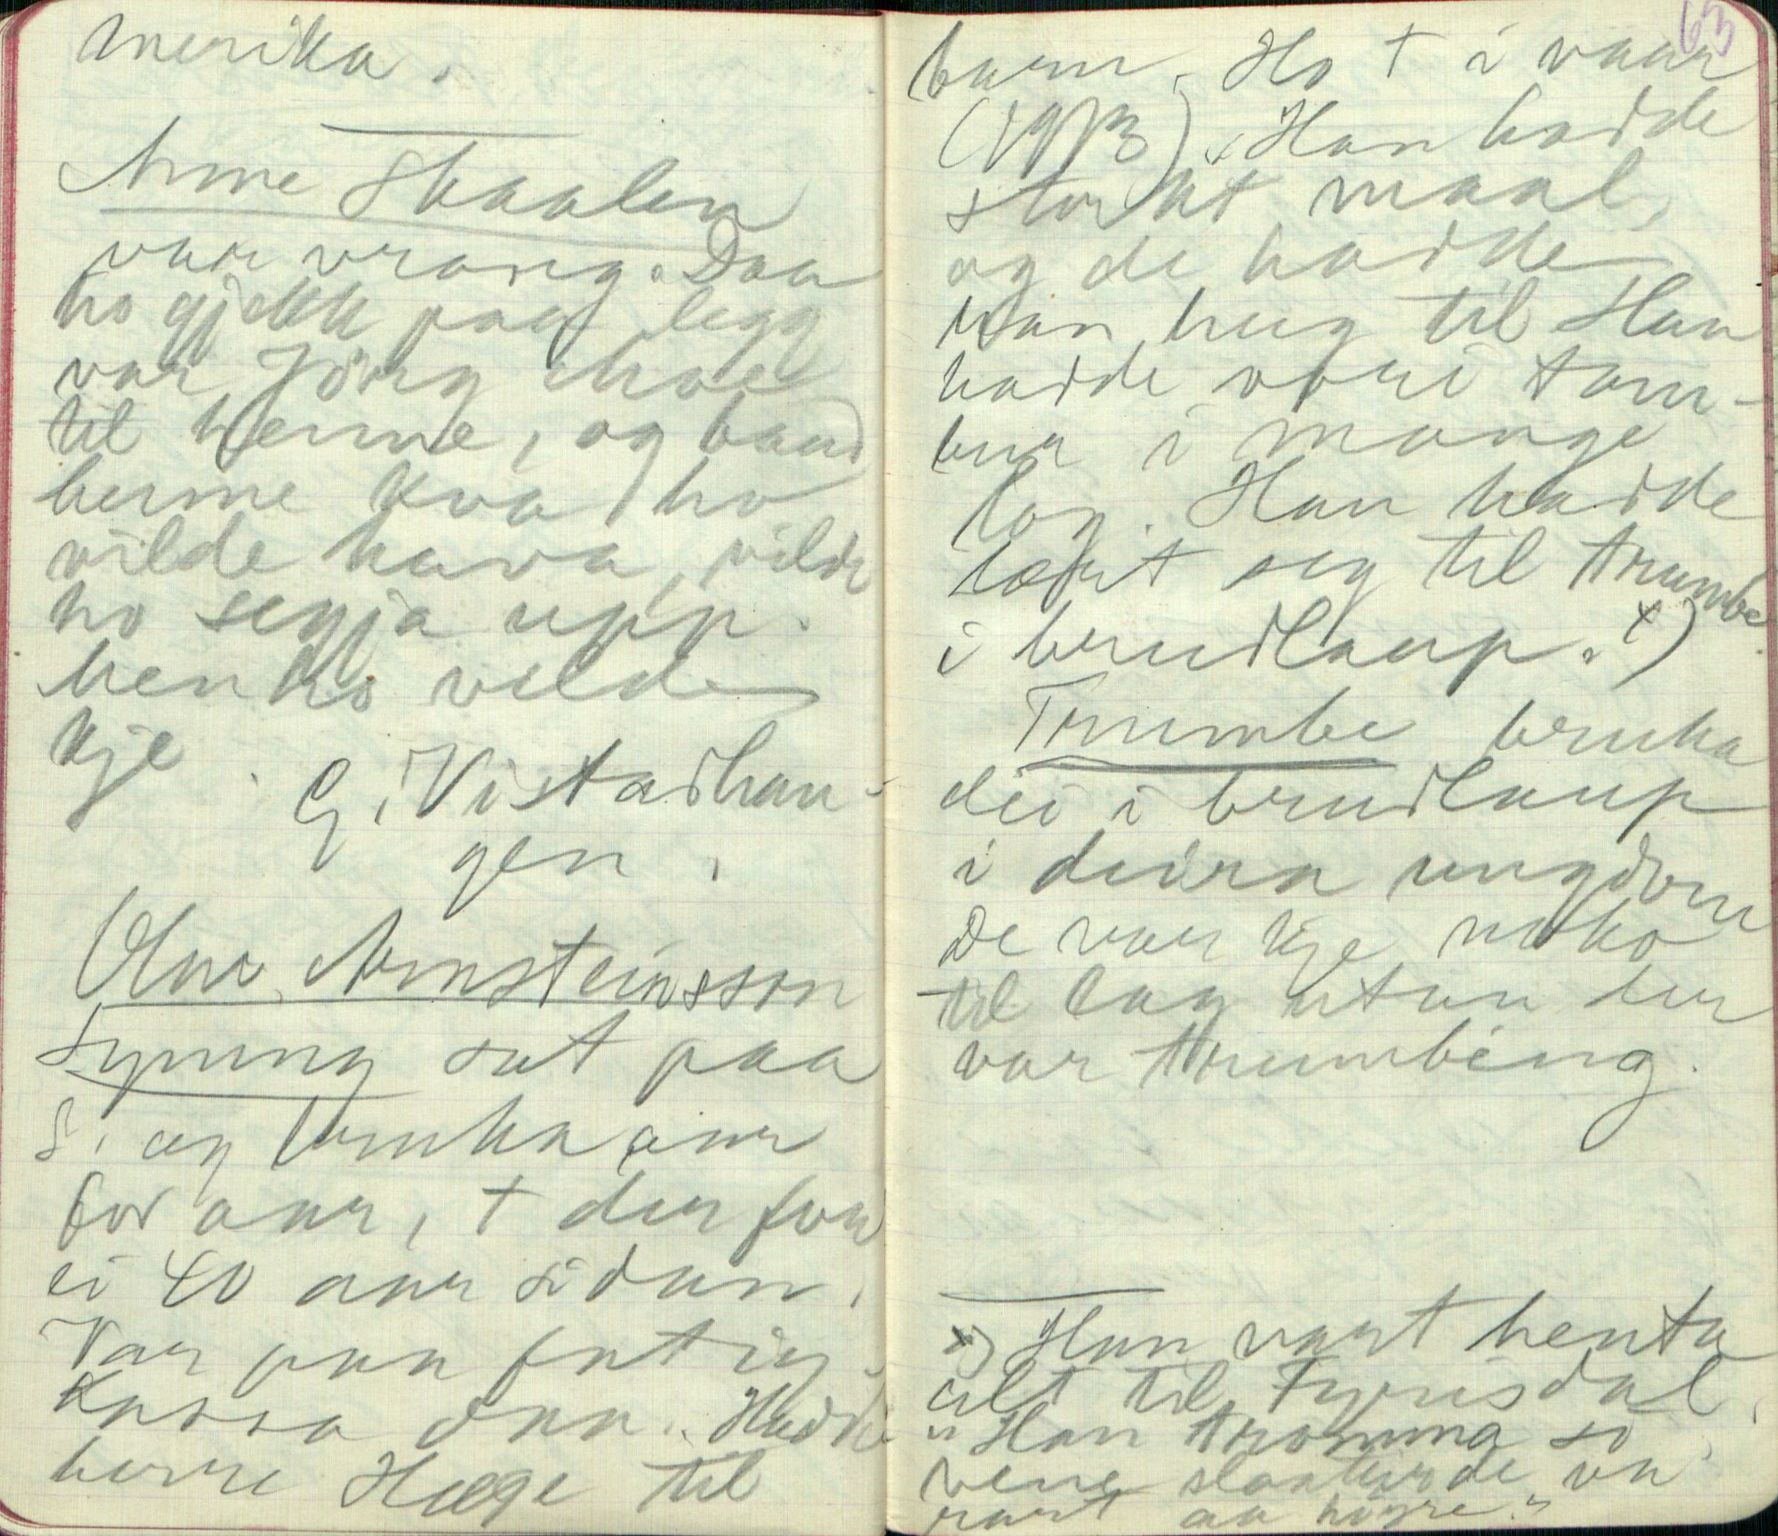 Amerika.
Anne Skaalen
var vrang. Daa
ho gjekk paa legg
var Jörg
til henne, og baud
henne kva ho
vilde hava, vilde
ho segja upp.
Men ho vilde
kje
G. Vistadhau-
gen.
Olav Arnsteinsson
Tyning sat paa
S. og bruka aar
for aar, † der for
ei 40 aar sidan.
Var paa fatig-
kassa daa. Hadde
berre Hæge til
63
barn. Ho † i vaar
(1913). Han hadde
storkt maal,
og de hadde
han hug til Han
hadde vori tam-
bur i mange
lag. Han hadde
lært seg til trumbe
i brudlaup. x)
Trumbe bruka
dei i brudlaup
i deira ungdom
De var kje noko
til lag utan der
var trumbing.
x) Han vart henta
alt til Fyrisdal.
"Han tromma so
vene slaatter de va
rart aa höyre."